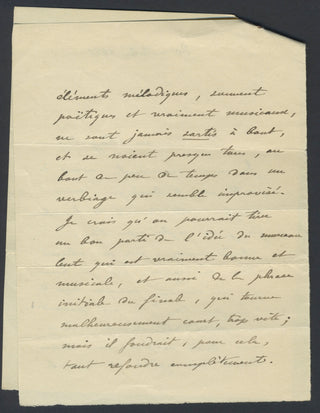 éléments mélodiques, souvent
poëtiques et vraiment musicaux,
ne sont jamais sortis à bout,
et se noient presque tous, au
bout de peu de temps dans un
verbiage qui semble improvisé.
Je crois qu'on pourrait tirer
un bon parti de l'idée du morceau
lent qui est vraiment bonne et
musicale, et aussi de la phrase
initiale du final, qui tourne
malheureusement court, trop vite;
mais il faudrait, pour cela,
tout refondre complètement.